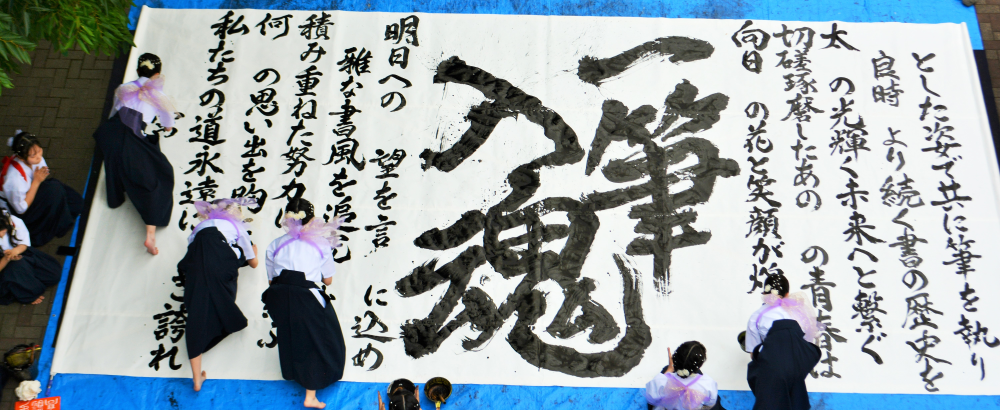 とした姿で共に筆を執り
良時 より続く書の歴史を
太 の光輝く未来へと繋ぐ
切磋琢磨したあの の青春は
向日 の花と笑顔が
一筆
入魂
明日への 望を言 に込め
雅な書風を追究
積み重ねた努力
何 の思い出を胸
私たちの道永遠に 誇れ